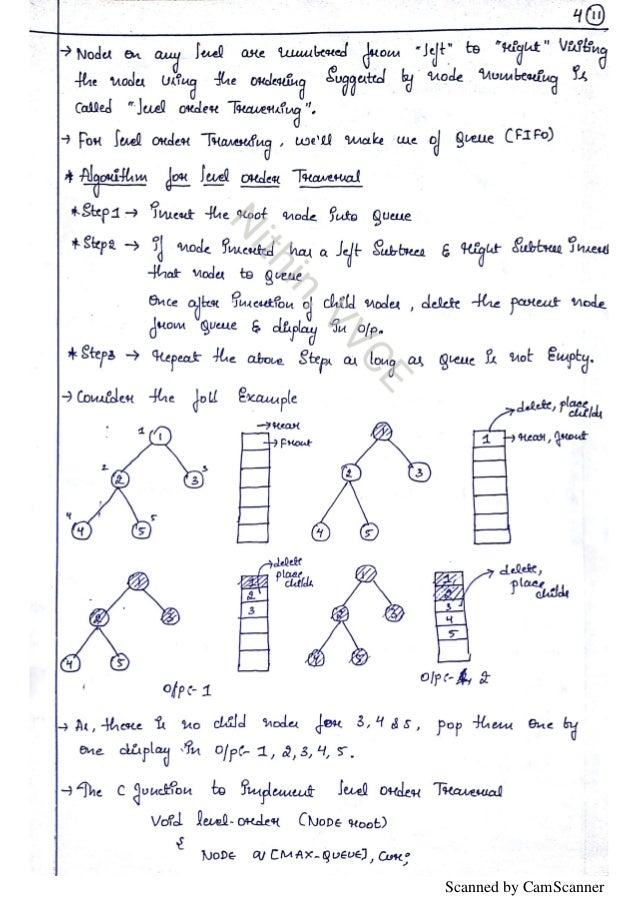 4 (11)
→ Nodes on any level are numbered from "left" to "right" Visiting
the nodes using the ordering Suggested by node numbering is
called "level order Traversing".
→ For level order Traversing, we'll make use of Queue (FIFO)
* Algorithm for level order Traversal
* Step1 → Insert the root node into Queue
* Step2 → If node inserted has a left Subtree & right Subtree Insert
that nodes to Queue
Once after insertion of child nodes, delete the parent node
from Queue & display in O/p.
* Step3 → Repeat the above Steps as long as Queue is not Empty.
Nithin VVCE
→ Consider the foll Example
1 1
2 2 3 3
4 4 5 5
→ rear
→ front
1
2 3
4 5
→ delete, place childs
1 → rear, front
1
2 3
4 5
1 → delete place childs
2
3
O/p:- 1
1
2 3
4 5
1
2 → delete, place childs
3
4
5
O/p:- 1, 2
→ As, there is no child nodes for 3, 4 & 5, pop them one by
one display in O/p:- 1, 2, 3, 4, 5.
→ The C function to implement level order Traversal
Void level-order (NODE root)
{
NODE q[MAX-QUEUE], cur;
Scanned by CamScanner